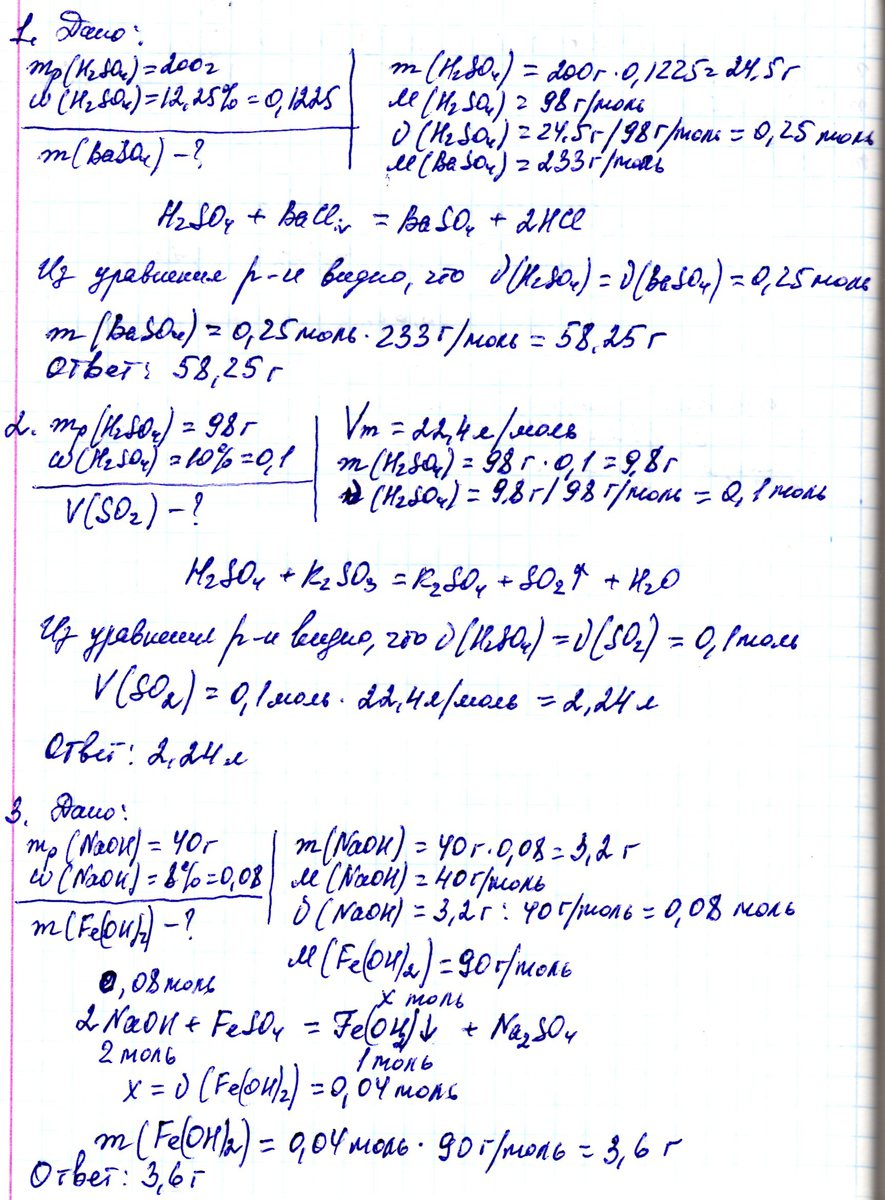 1. Дано:
mр(H₂SO₄) = 200г
ω(H₂SO₄) = 12,25% = 0,1225
m(BaSO₄) – ?
m(H₂SO₄) = 200г · 0,1225 = 24,5г
M(H₂SO₄) = 98г/моль
ν(H₂SO₄) = 24,5г/98г/моль = 0,25 моль
M(BaSO₄) = 233г/моль
H₂SO₄ + BaCl₂ = BaSO₄ + 2HCl
Из уравнения р-и видно, что ν(H₂SO₄) = ν(BaSO₄) = 0,25 моль
m(BaSO₄) = 0,25 моль · 233 г/моль = 58,25 г
Ответ: 58,25 г
2. mр(H₂SO₄) = 98г
ω(H₂SO₄) = 10% = 0,1
V(SO₂) – ?
Vm = 22,4 л/моль
m(H₂SO₄) = 98 г · 0,1 = 9,8г
ν(H₂SO₄) = 9,8г/98 г/моль = 0,1 моль
H₂SO₄ + K₂SO₃ = K₂SO₄ + SO₂↑ + H₂O
Из уравнения р-и видно, что ν(H₂SO₄) = ν(SO₂) = 0,1 моль
V(SO₂) = 0,1 моль · 22,4 л/моль = 2,24 л
Ответ: 2,24 л
3. Дано:
mр(NaOH) = 40г
ω(NaOH) = 8% = 0,08
m(Fe(OH)₂) – ?
m(NaOH) = 40г · 0,08 = 3,2 г
M(NaOH) = 40г/моль
ν(NaOH) = 3,2 г : 40 г/моль = 0,08 моль
M(Fe(OH)₂) = 90 г/моль
0,08 моль x моль
2NaOH + FeSO₄ = Fe(OH)₂↓ + Na₂SO₄
2 моль 1 моль
x = ν(Fe(OH)₂) = 0,04 моль
m(Fe(OH)₂) = 0,04 моль · 90 г/моль = 3,6 г
Ответ: 3,6 г